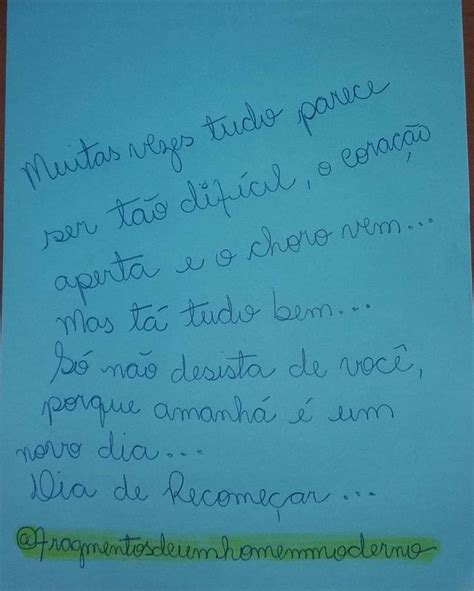 Muitas vezes tudo parece
ser tão difícil, o coração
aperta e o choro vem...
Mas tá tudo bem...
Só não desista de você,
porque amanhã é um
novo dia...
Dia de Recomeçar...
@fragmentosdeumhomemmoderno